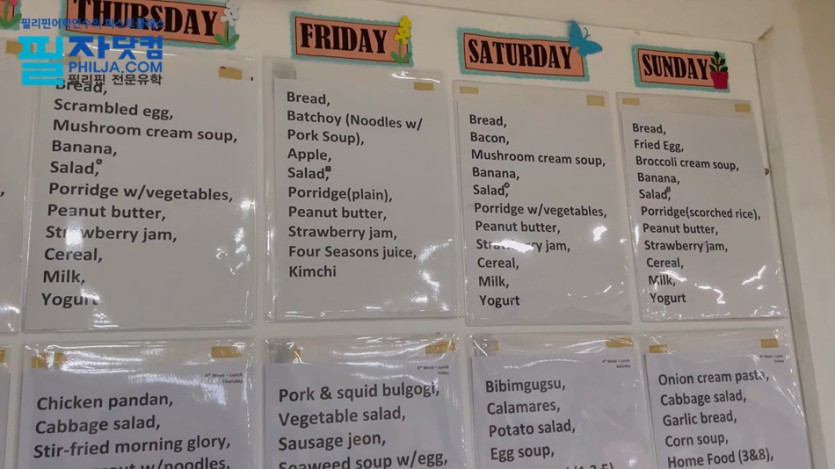 필리핀어학연수의 퍼스트클래스
필자닷컴
PHILJA.COM
필리핀 전문유학
THURSDAY
Bread,
Scrambled egg,
Mushroom cream soup,
Banana,
Salad,
Porridge w/vegetables,
Peanut butter,
Strawberry jam,
Cereal,
Milk,
Yogurt
FRIDAY
Bread,
Batchoy (Noodles w/
Pork Soup),
Apple,
Salad,
Porridge(plain),
Peanut butter,
Strawberry jam,
Four Seasons juice,
Kimchi
SATURDAY
Bread,
Bacon,
Mushroom cream soup,
Banana,
Salad,
Porridge w/vegetables,
Peanut butter,
Strawberry jam,
Cereal,
Milk,
Yogurt
SUNDAY
Bread,
Fried Egg,
Broccoli cream soup,
Banana,
Salad,
Porridge(scorched rice),
Peanut butter,
Strawberry jam,
Cereal,
Milk,
Yogurt
Chicken pandan,
Cabbage salad,
Stir-fried morning glory,
w/noodles,
Pork & squid bulgogi,
Vegetable salad,
Sausage jeon,
Seaweed soup w/egg,
Bibimgugsu,
Calamares,
Potato salad,
Egg soup,
Onion cream pasta,
Cabbage salad,
Garlic bread,
Corn soup,
Home Food (3&8),